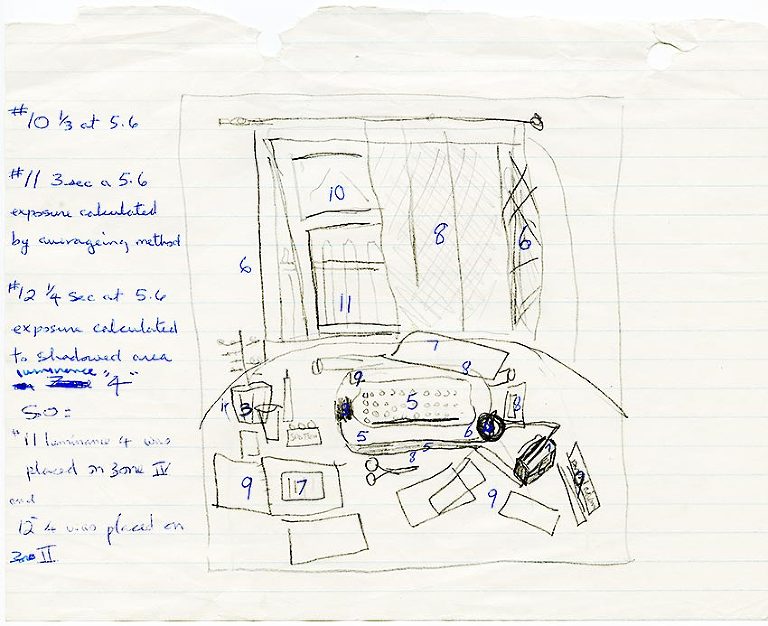 #10 1/3 at 5.6
#11 3 sec a 5.6
exposure calculated
by avirageing method
#12 1/4 sec at 5.6
exposure calculated
to shadowed area
luminance "4"
SO=
#11 luminance 4 was
placed on Zone IV
and
12 4 was placed on
II
10
8
6
6
11
7
8
9
5
3
8
5
6
5
8
9
17
9